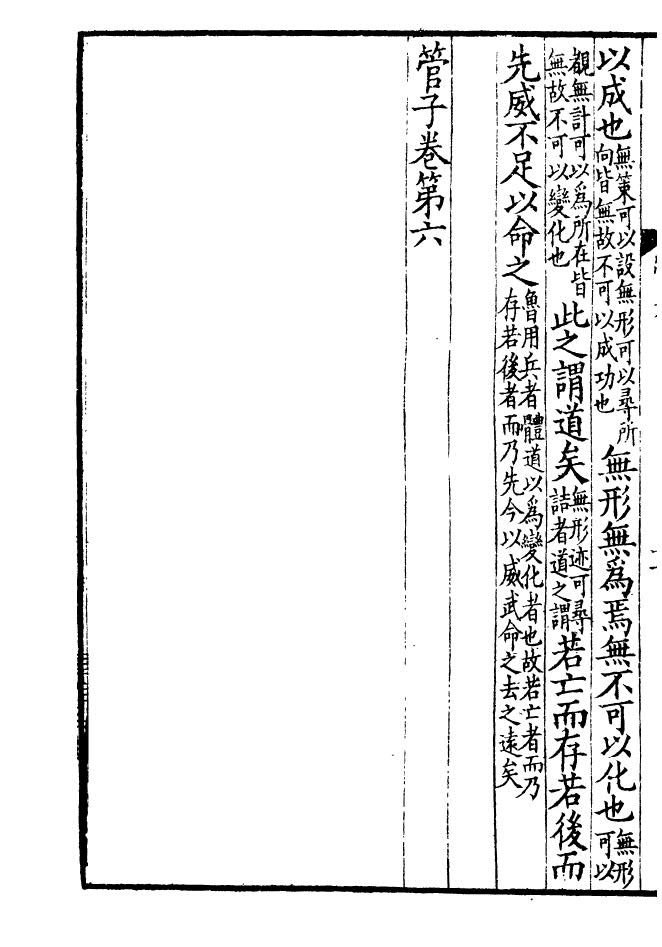 以成也無策可以設無形可以尋所向皆無故不可以成功也無形無爲焉無不可以化也無形可以
覩無計可以爲所在皆無故不可以變化也此之謂道矣無形迹可尋詰者道之謂若亡而存若後而
先威不足以命之魯用兵者體道以爲變化者也故若亡者而乃存若後者而乃先今以威武命之去之遠矣
管子卷第六